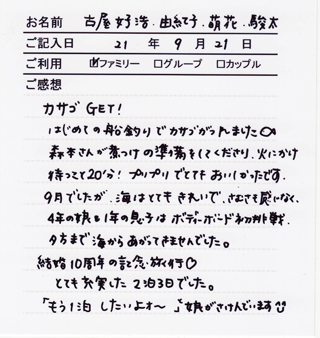 お名前 古屋 好浩、由紀子、萌花、駿太
ご記入日 21 年 9 月 21 日
ご利用 ☑ファミリー □グループ □カップル
ご感想
カサゴ GET！
はじめての船釣りでカサゴがつれました
森本さんが煮つけの準備をしてくださり、火にかけ
待つこと20分！プリプリでとてもおいしかったです。
9月でしたが、海はとてもきれいで、さむさも感じなく、
4年の娘と1年の息子はボディーボード初挑戦。
夕方まで海からあがってきませんでした。
結婚10周年の記念旅行♡
とても充実した2泊3日でした。
「もう1泊 したいよォ〜」と娘がさけんでいます